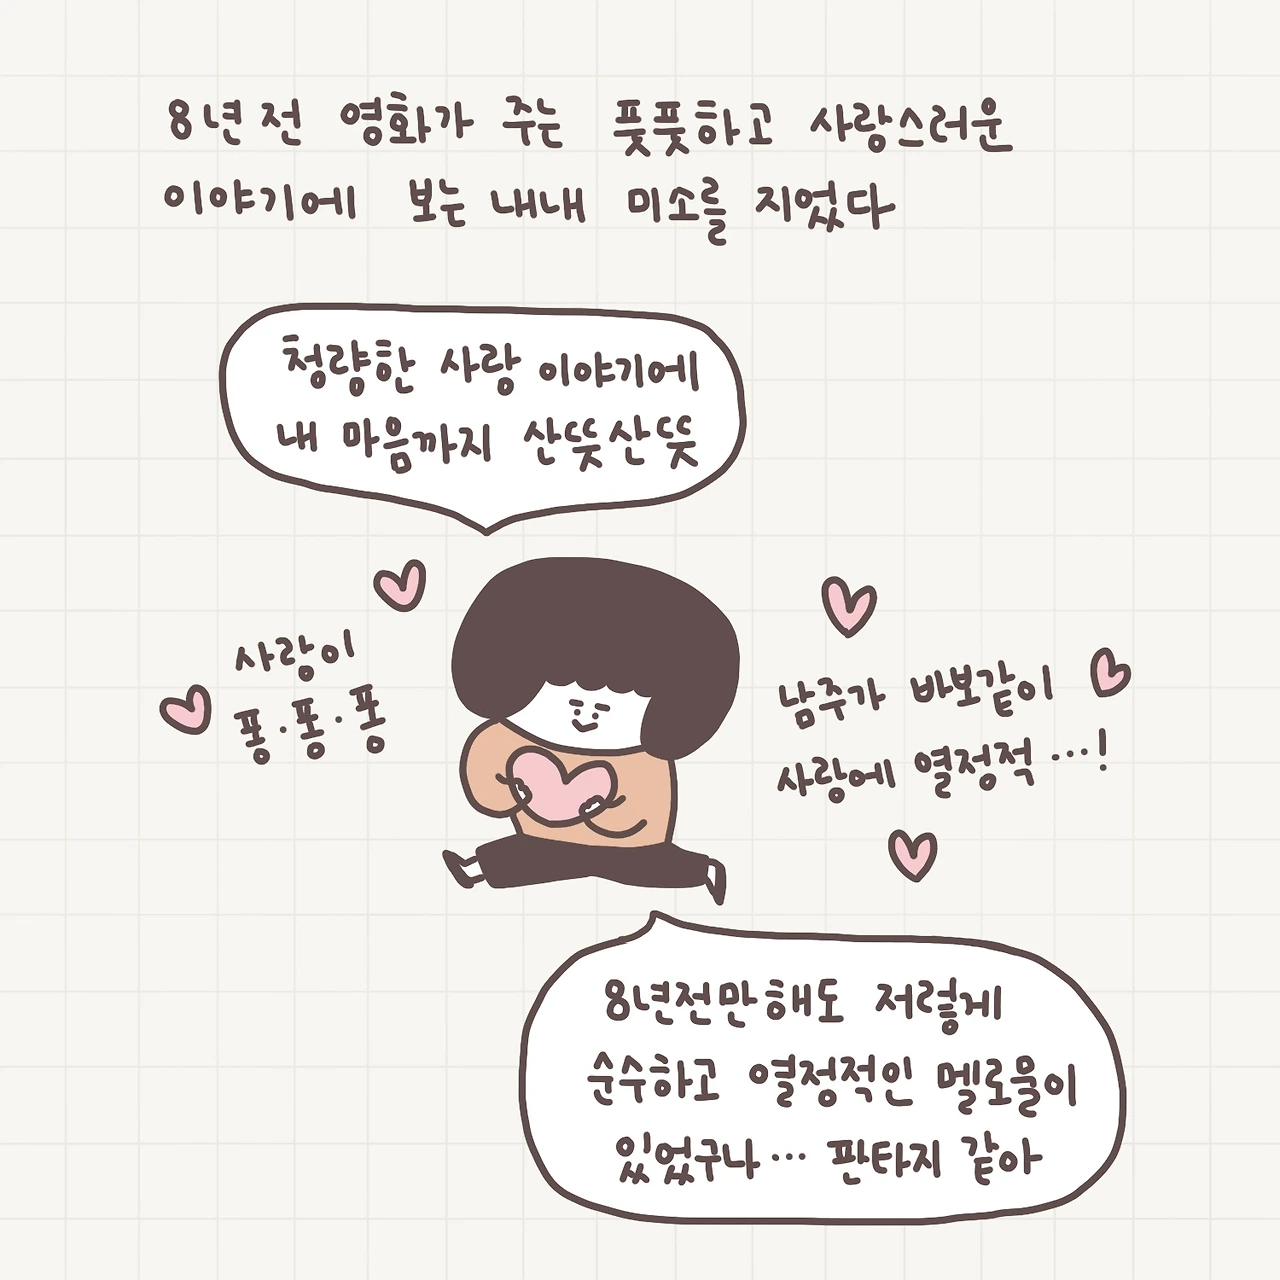 8년 전 영화가 주는 풋풋하고 사랑스러운
이야기에 보는 내내 미소를 지었다
청량한 사랑 이야기에
내 마음까지 산뜻산뜻
사랑이
퐁·퐁·퐁
남주가 바보같이
사랑에 열정적…!
8년전만해도 저렇게
순수하고 열정적인 멜로물이
있었구나… 판타지 같아